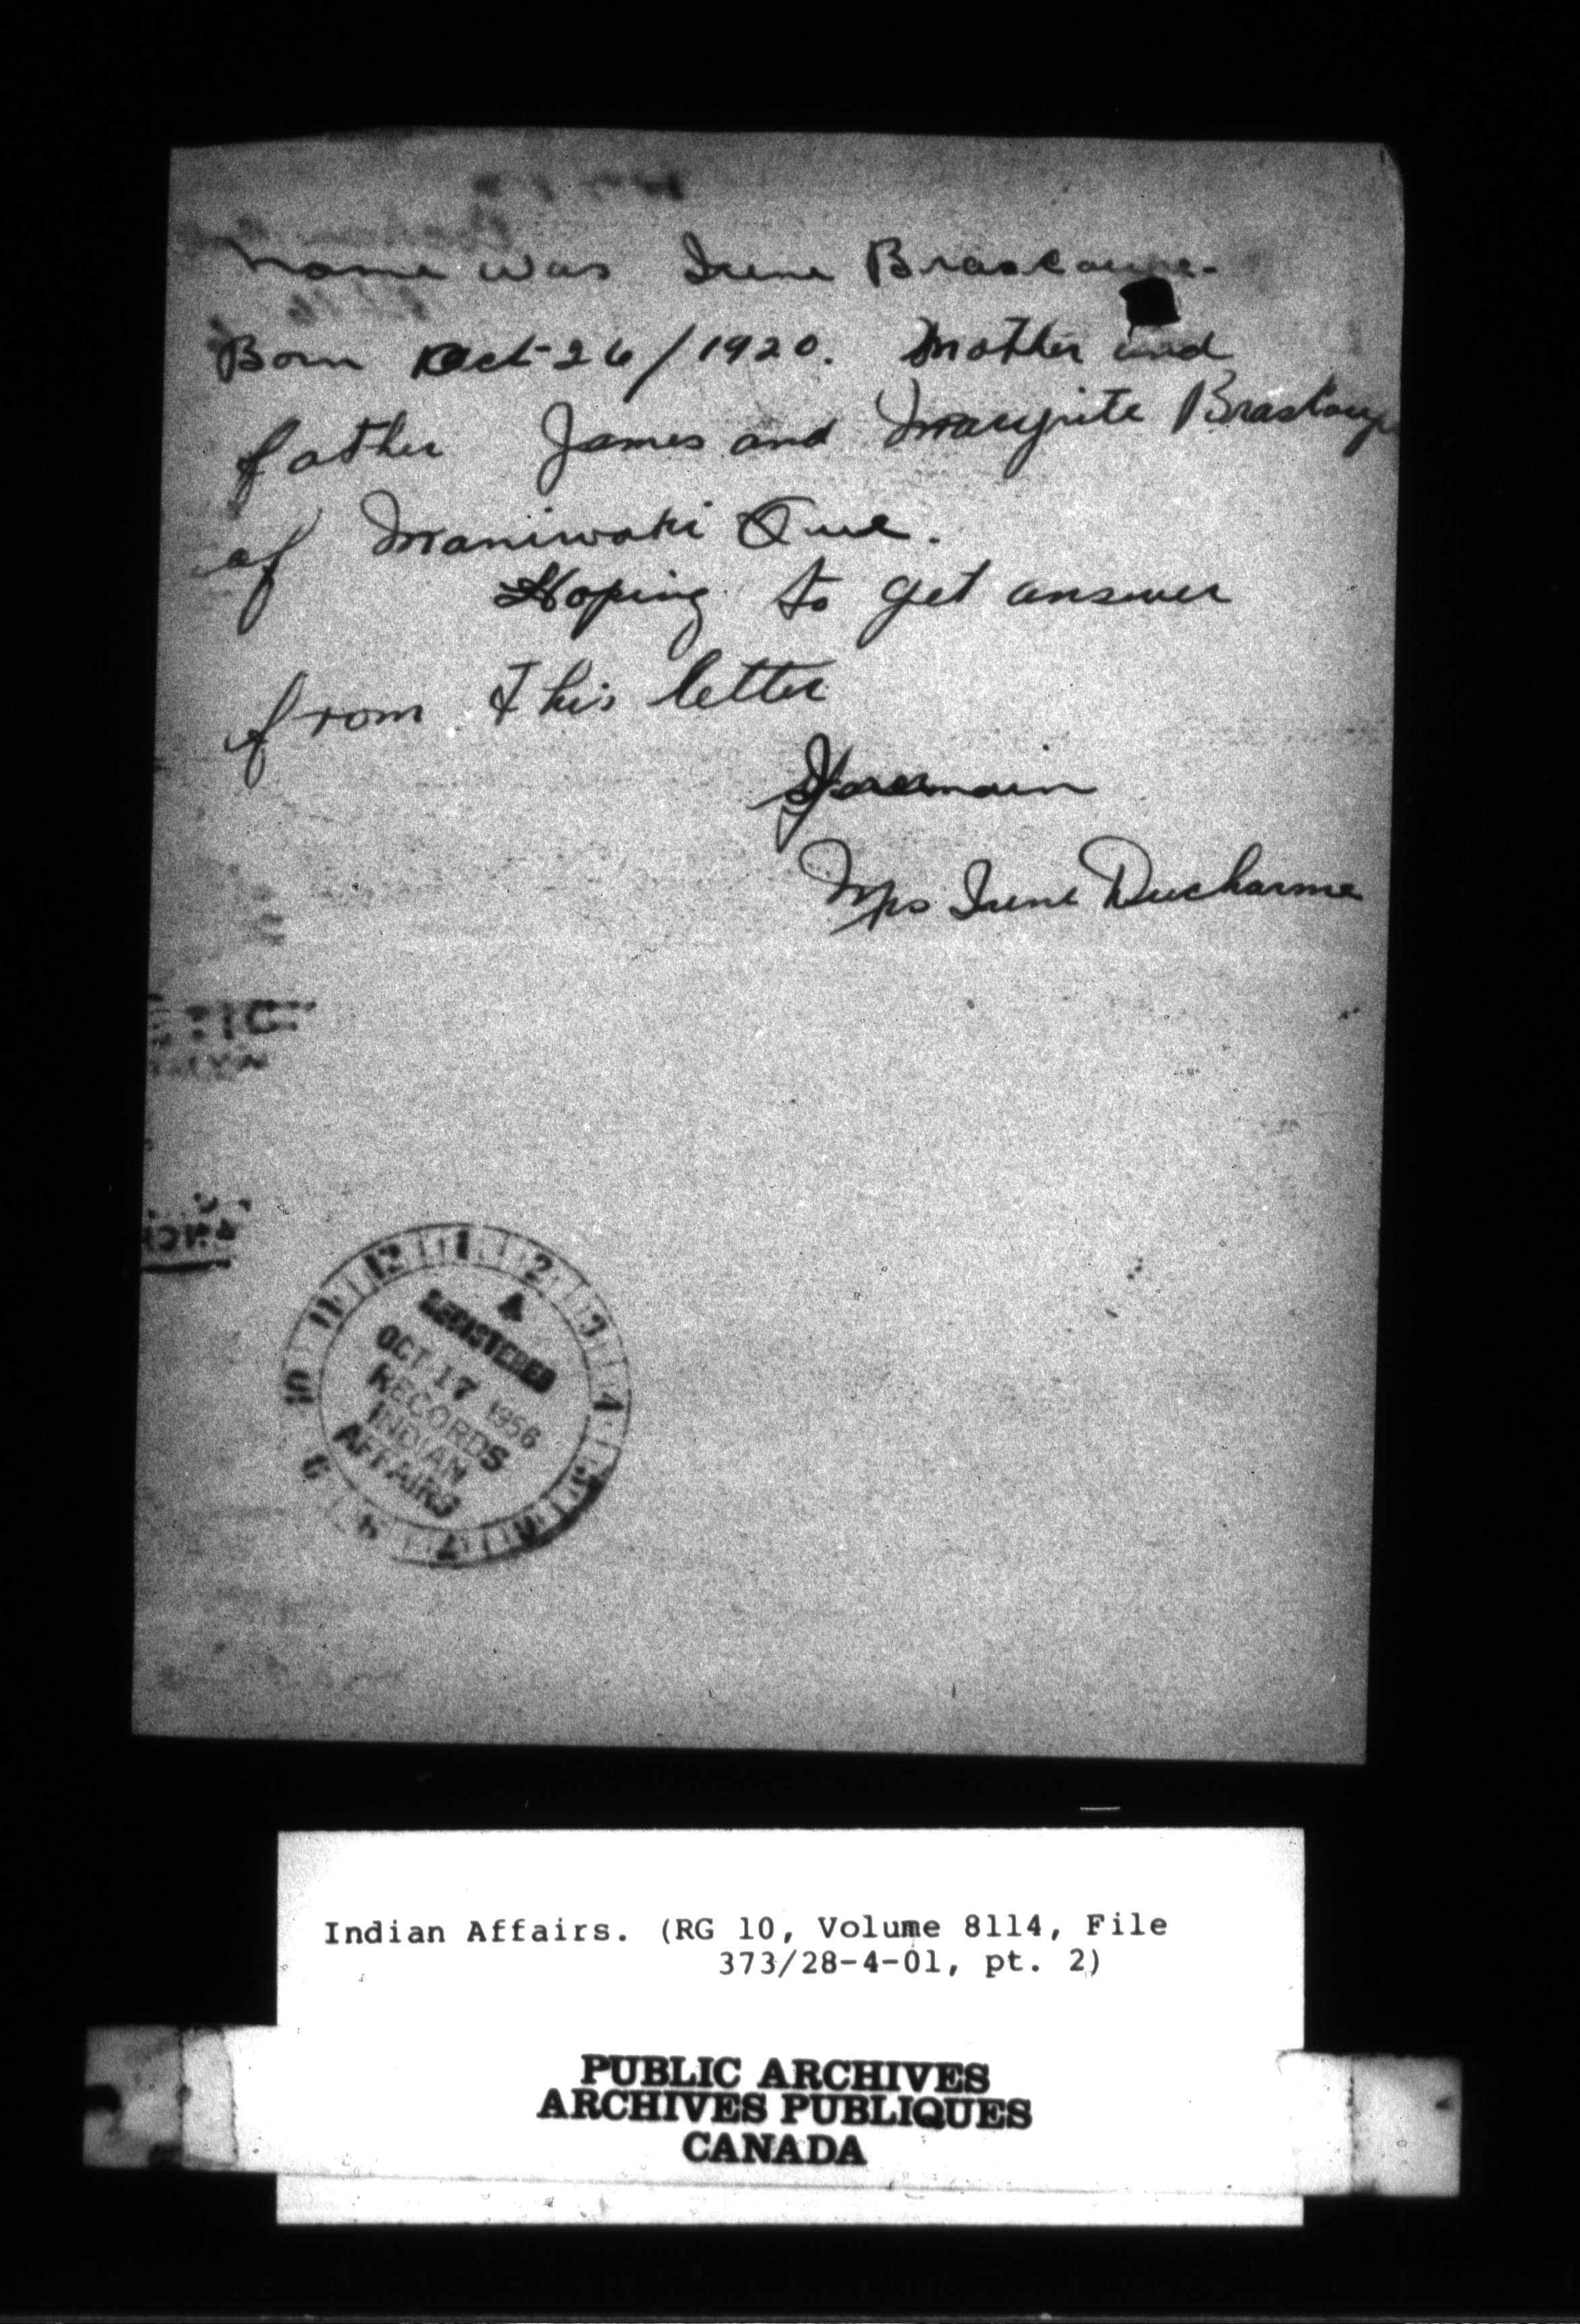 name was Irene Brascoupe.
Born Oct-26/1920. Mother and
father James and Margrite Braskoupe
of Maniwaki Que.
Hoping to get answer
from This letter
I remain
Mrs Irene Ducharme
12 1 2 3 4 5 6 7 8 9 10 11
REGISTERED
OCT 17 1956
RECORDS
INDIAN
AFFAIRS
Indian Affairs. (RG 10, Volume 8114, File
373/28-4-01, pt. 2)
PUBLIC ARCHIVES
ARCHIVES PUBLIQUES
CANADA